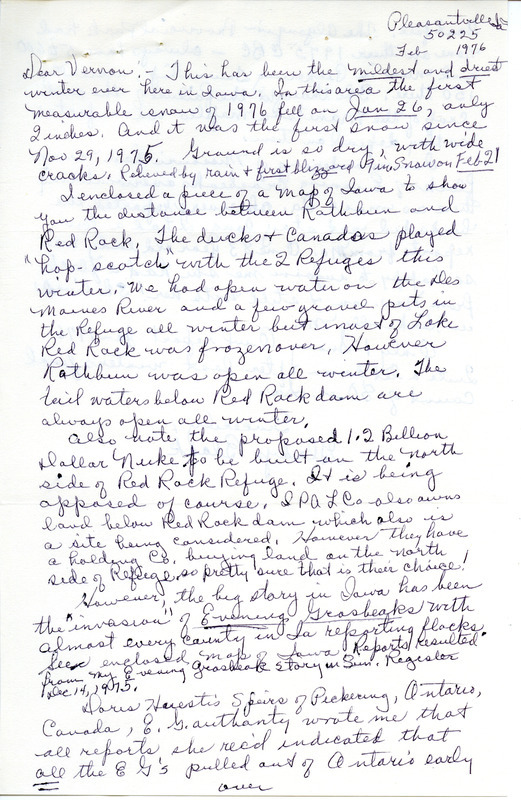 Pleasantville Ia
50225
Feb 1976
Dear Vernon:- This has been the mildest and driest
winter ever here in Iowa. In this area the first
measurable snow of 1976 fell on Jan 26, only
2 inches. And it was the first snow since
Nov 29, 1975. Ground is so dry, with wide
cracks. Relieved by rain & first blizzard 9 in. Snow on Feb 21
I enclosed a piece of a map of Iowa to show
you the distance between Rathbun and
Red Rock. The ducks & Canadas played
"hop-scotch" with the 2 Refuges this
winter. We had open water on the Des
Moines River and a few gravel pits in
the Refuge all winter but most of Lake
Red Rock was frozen over. However
Rathbun was open all winter. The
tail waters below Red Rock dam are
always open all winter.
Also note the proposed 1.2 Billion
Dollar Nuke to be built on the north
side of Red Rock Refuge. It is being
opposed of course. I P A L Co also owns
land below Red Rock dam which also is
a site being considered. However they have
a holding Co. buying land on the north
side of Refuge so pretty sure that is their choice!
However, the big story in Iowa has been
the "invasion" of Evening Grosbeaks with
almost every county in Ia reporting flocks.
See enclosed map of Iowa Reports Resulted
from my Evening Grosbeak Story in Sun. Register
Dec 14, 1975.
Doris Huestis Speirs of Pickering, Ontario,
Canada, E. G. authority wrote me that
all reports she rec'd indicated that
all the E G's pulled out of Ontario early
over